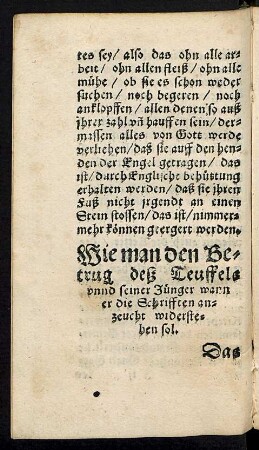 tes sey / also das ohn alle ar-
beit / ohn allen fleiß / ohn alle
mühe / ob sie es schon weder
suchen / noch begeren / noch
anklopffen / allen denen so auß
jhrer zahl vñ hauffen sein / der-
massen alles von Gott werde
verliehen / daß sie auff den hen-
den der Engel getragen / das
ist / durch Englische behüttung
erhalten werden / daß sie jhren
Fuß nicht jrgendt an einen
Stein stossen / das ist / nimmer-
mehr können geergert werden.
Wie man den Be-
trug deß Teuffels
vnnd seiner Jünger wann
er die Schrifften an-
zeucht widerste-
hen sol.
Das